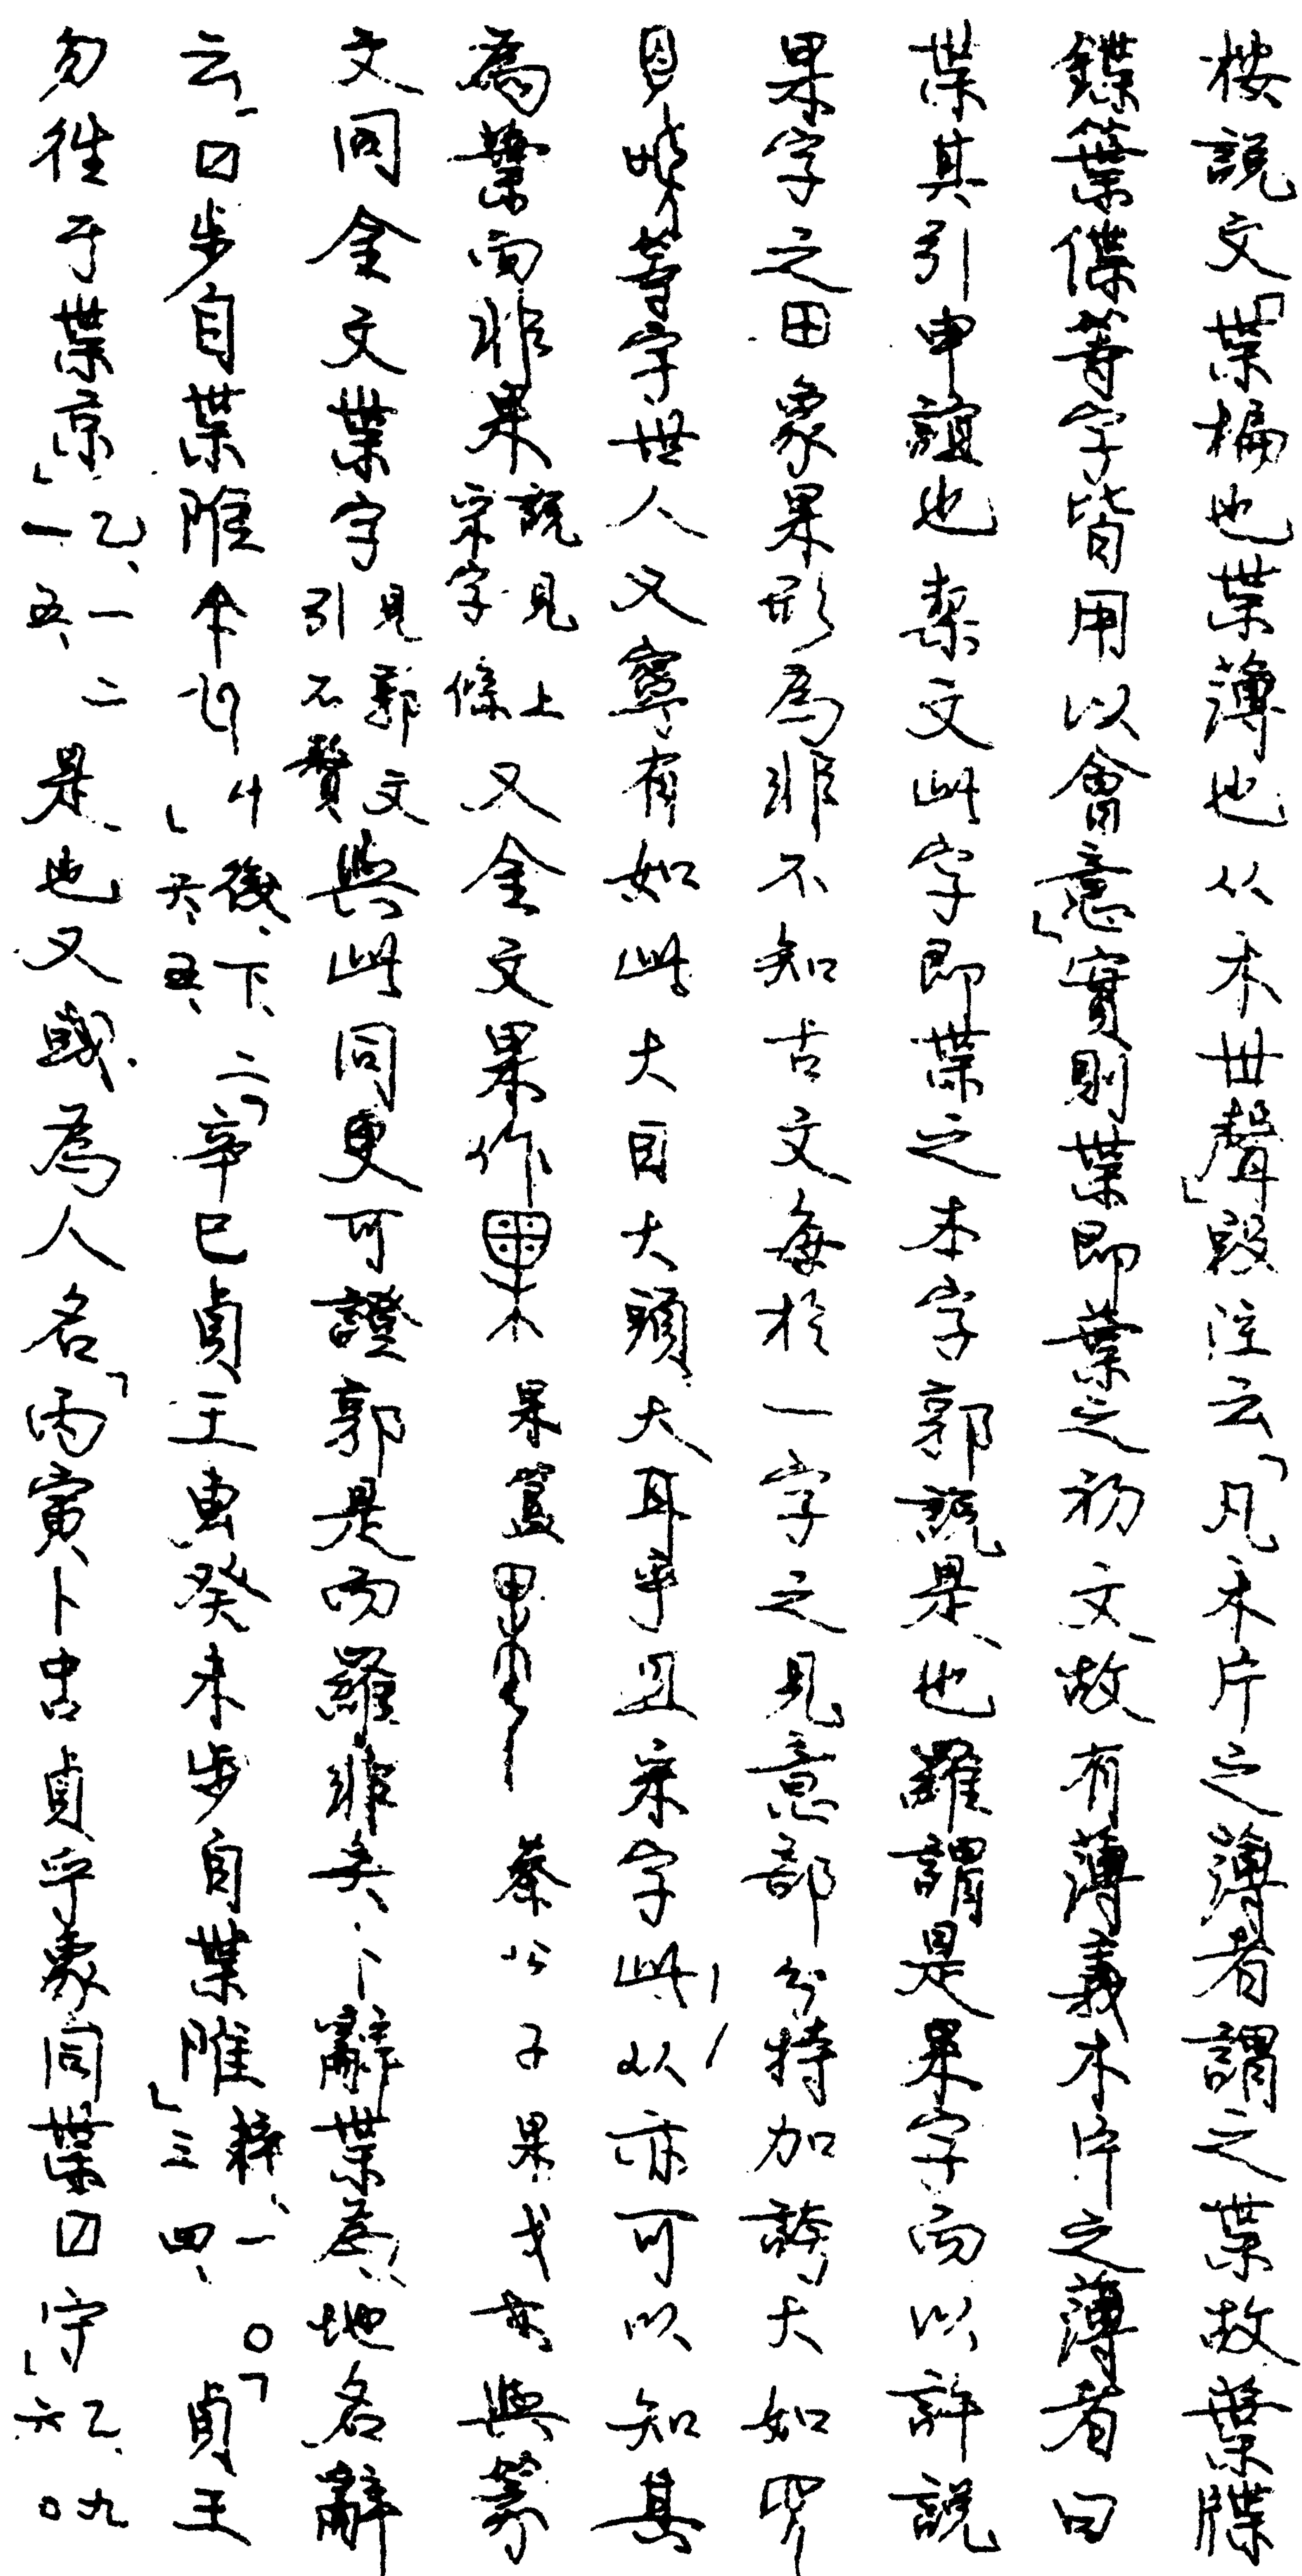 按說文「枼楄也枼薄也从木丗聲」段注云「凡木片之薄者謂之枼故葉牒
鍱䈎偞等字皆用以會意」實則枼即葉之初文故有薄義木片之薄者曰
枼其引申誼也栔文此字即枼之本字郭說是也羅謂是果字而以許說
果字之田象果形為非不知古文每於一字之見意部分特加誇大如
見等字世人又寧有如此大目大頭大耳乎且桒字此从亦可以知其
為枼而非果說見上桒字條又金文果作果簋蔡公子果戈亦與篆
文同金文枼字見郭文引不贅與此同更可證郭是而羅非矣卜辭枼為地名辭
云「囗步自枼隹」後、下、二六、五、「辛巳貞王叀癸未步自枼隹」粹、一〇三四、「貞王
勿往于枼京」乙、一一五、二是也又或為人名「丙寅卜㕢貞乎象同枼囗宁」乙、九六〇